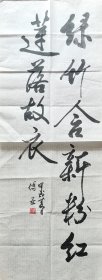 绿竹含新粉红
莲落故衣